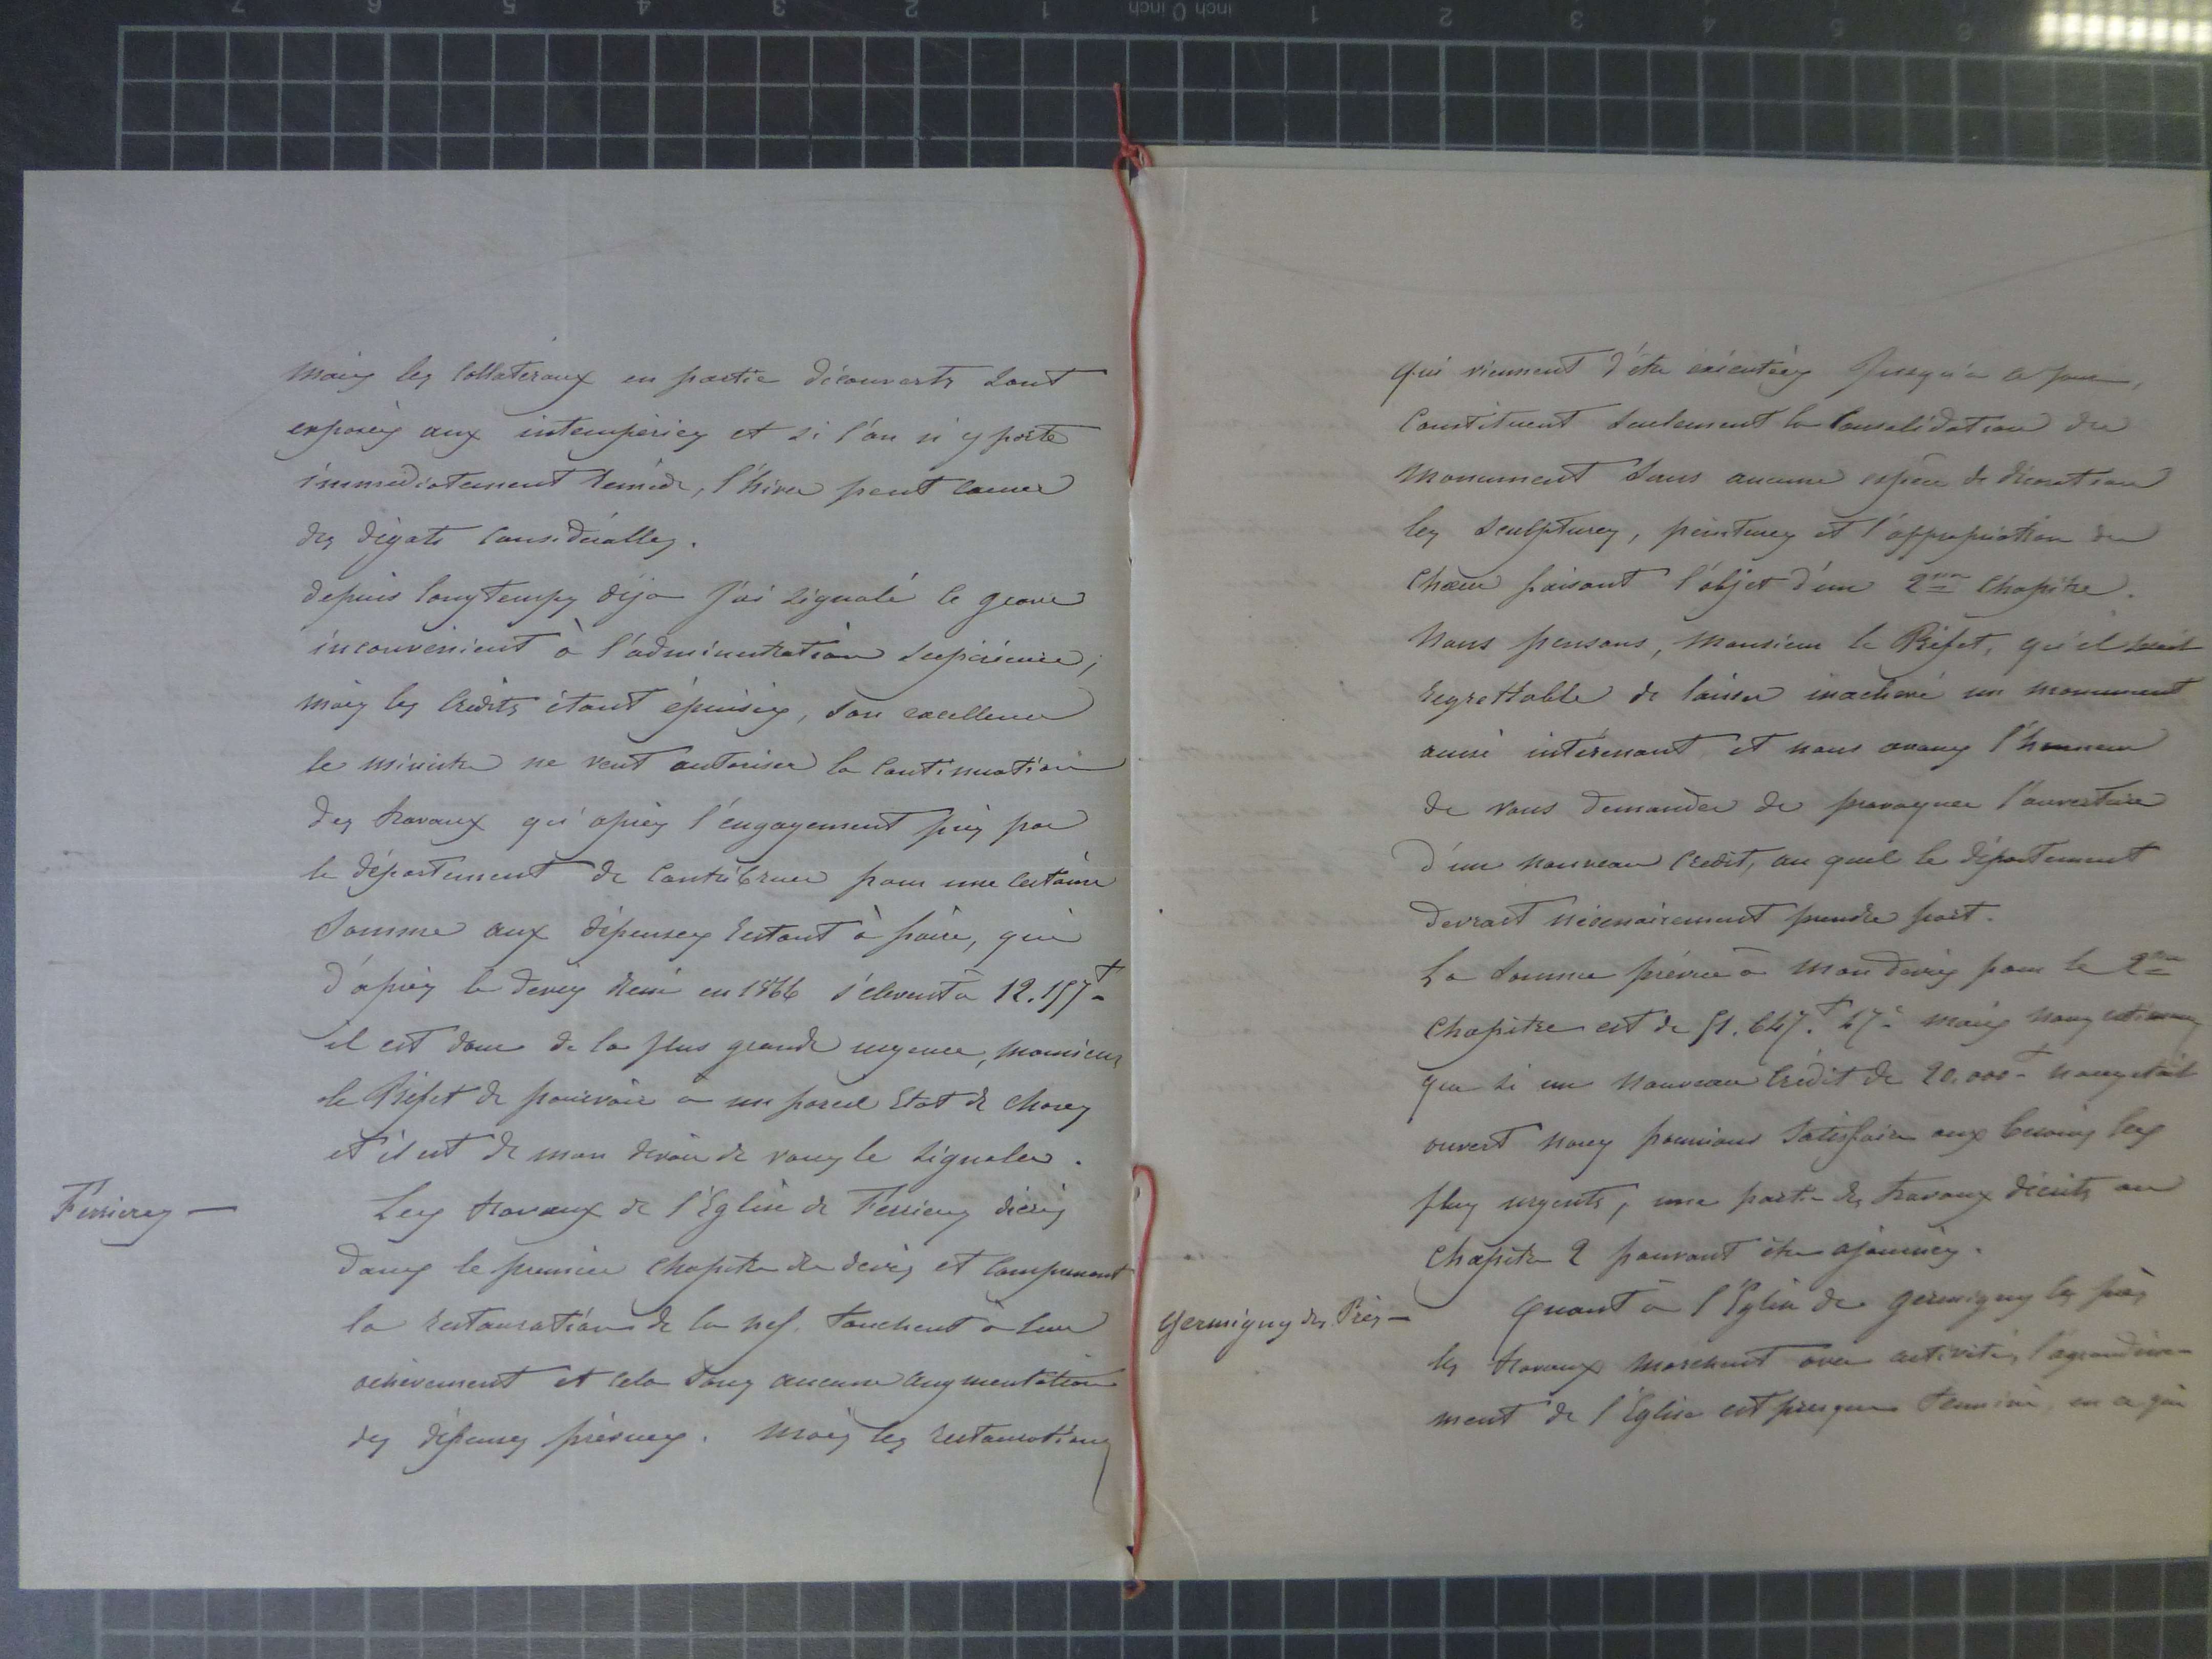 7 6 5 4 3 2 1 inch 0 inch 1 2 3 4 5 6
mais les collateraux en partie découverts sont
exposés aux intemperies et si l'on n'y porte
immediatement remède, l'hiver peut causer
des dégats considérables.
depuis longtemps déja j'ai signalé ce grave
inconvénient à l'administration supérieure;
mais les crédits étant épuisés, son excellence
le ministre ne veut autoriser la continuation
des travaux qu'après l'engagement pris par
le département de contribuer pour une certaine
somme aux dépenses restant à faire, qui
d'après le devis dressé en 1866 s'elevent à 12.157f
il est donc de la plus grande urgence, monsieur
le Préfet de pourvoir à un pareil Etat de choses
et il est de mon devoir de vous le signaler.
Ferrieres —
Les travaux de l'Eglise de Ferrieres
dans le premier chapitre du devis et comprenant
la restauration de la nef. touchent à leur
achèvement et cela sans aucune augmentation
des dépenses prévues. mais les restaurations
qui viennent d'être exécutées jusqu'à ce jour,
constituent seulement la consolidation du
monument sans aucune espèce de décoration
les sculptures, peintures et l'appropriation du
chœur faisant l'objet d'un 2me chapitre.
Nous pensons, monsieur le Préfet, qu'il serait
regrettable de laisser inachevé un monument
aussi intéressant et nous avons l'honneur
de vous demander de provoquer l'ouverture
d'un nouveau crédit, au quel le département
devrait nécessairement prendre part.
La somme prévue à mon devis pour le 2me
chapitre est de 51.647.f 47c mais nous estimons
que si un nouveau crédit de 20.000f nous était
ouvert nous pourrions satisfaire aux besoins les
plus urgents, une partie des travaux décrits au
chapitre 2 pouvant être ajournés.
Germigny des Prés —
Quant à l'Eglise de germigny les prés
les travaux marchent avec activité, l'agrandisse-
ment de l'Eglise est presque terminé, en ce qui